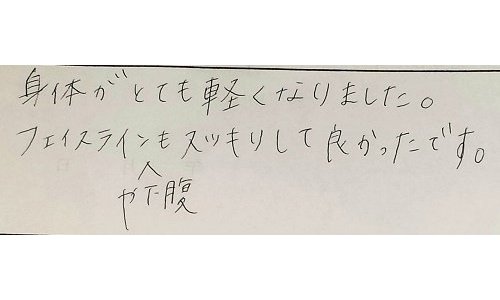 身体がとても軽くなりました。
フェイスラインもスッキリして良かったです。
や下腹